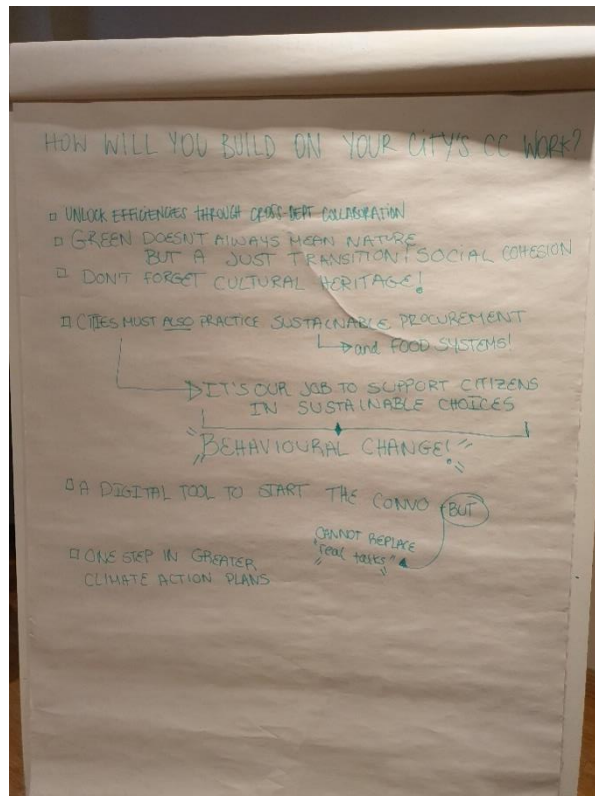 HOW WILL YOU BUILD ON YOUR CITY'S CC WORK?
UNLOCK EFFICIENCIES THROUGH CROSS-DEPT COLLABORATION
GREEN DOESN'T ALWAYS MEAN NATURE
BUT A JUST TRANSITION! SOCIAL COHESION
DON'T FORGET CULTURAL HERITAGE!
CITIES MUST ALSO PRACTICE SUSTAINABLE PROCUREMENT
and FOOD SYSTEMS!
IT'S OUR JOB TO SUPPORT CITIZENS
IN SUSTAINABLE CHOICES
BEHAVIOURAL CHANGE!
A DIGITAL TOOL TO START THE CONVO BUT
CANNOT REPLACE
"real tasks"
ONE STEP IN GREATER
CLIMATE ACTION PLANS